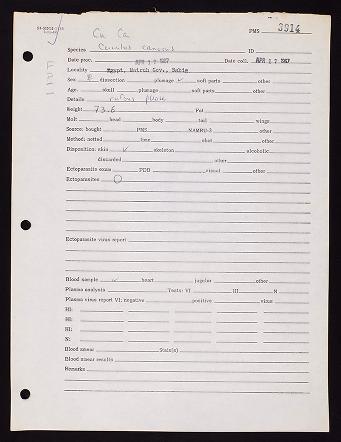 Cu Ca
PMS 3914
Species Cuculus canorus ID
Date proc. APR 17 1967 Date coll. APR 17 1967
Locality Egypt, Matruh Gov., Bahig
Sex dissection plumage ✓ soft parts other
Age skull plumage soft parts other
Details rufous phase
Weight 73.6 Fat
Molt: head body tail wings
Source: bought PMS NAMRU-3 other
Method: netted lime shot other
Disposition: skin ✓ skeleton alcoholic
discarded other
Ectoparasite exam PDB visual other
Ectoparasites O
Ectoparasite virus report
Blood sample ✓ heart jugular other
Plasma analysis Tests: VI HI N
Plasma virus report VI: negative positive virus
HI:
HI:
HI:
N:
Blood smear Stain(s)
Blood smear results
Remarks